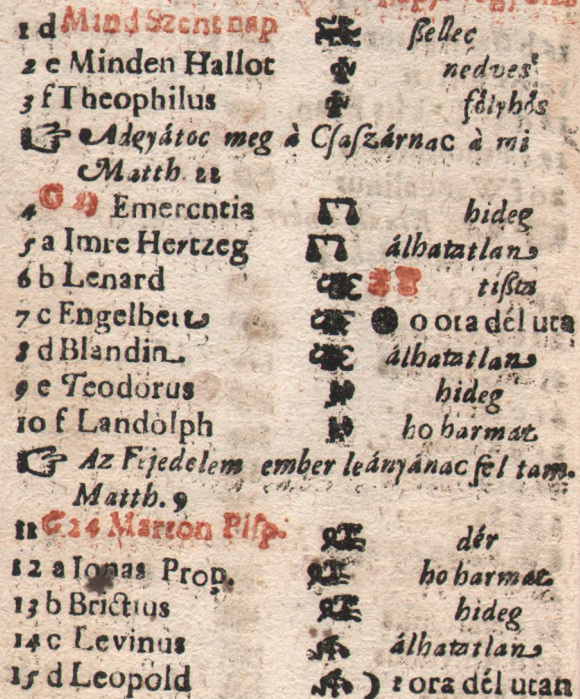 1 d Mind Szent nap ßellec
2 e Minden Hallot nedves
3 f Theophilus fólyhós
☞ Adgyátoc meg à Csaszárnac à mi
Matth. 22
4 G 23 Emerentia hideg
5 a Imre Hertzeg álhatatlan
6 b Lenard tißta
7 c Engelbert ● 0 ora dél uta
8 d Blandin. álhatatlan
9 e Teodorus hideg
10 f Landolph ho harmat
☞ Az Fejedelem ember leányánac fel tam.
Matth. 9
11 G 24 Marton Pisp. dér
12 a Ionas Prop. ho harmat
13 b Brictius hideg
14 c Levinus álhatatlan
15 d Leopold ) 1 ora dél utan